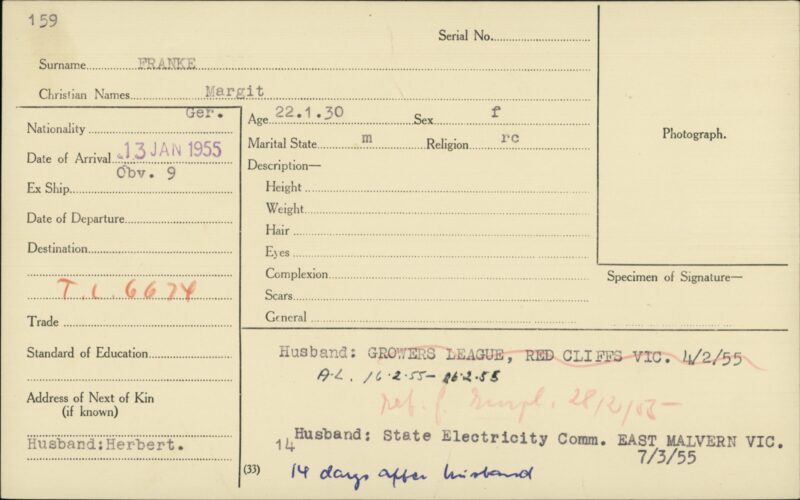 159
Serial No.
Surname FRANKE
Christian Names Margit
Nationality Ger.
Date of Arrival 13 JAN 1955
Obv. 9
Ex Ship
Date of Departure
Destination
T.C. 6674
Trade
Standard of Education
Address of Next of Kin
(if known)
Husband:Herbert.
Age 22.1.30 Sex f
Marital State m Religion rc
Description—
Height
Weight
Hair
Eyes
Complexion
Scars
General
Photograph.
Specimen of Signature—
Husband: GROWERS LEAGUE, RED CLIFFS VIC. 4/2/55
A-L. 16-2-55- 26-2-55
Ref. f. 28/2/55
14 Husband: State Electricity Comm. EAST MALVERN VIC.
7/3/55
(33) 14 days after husband